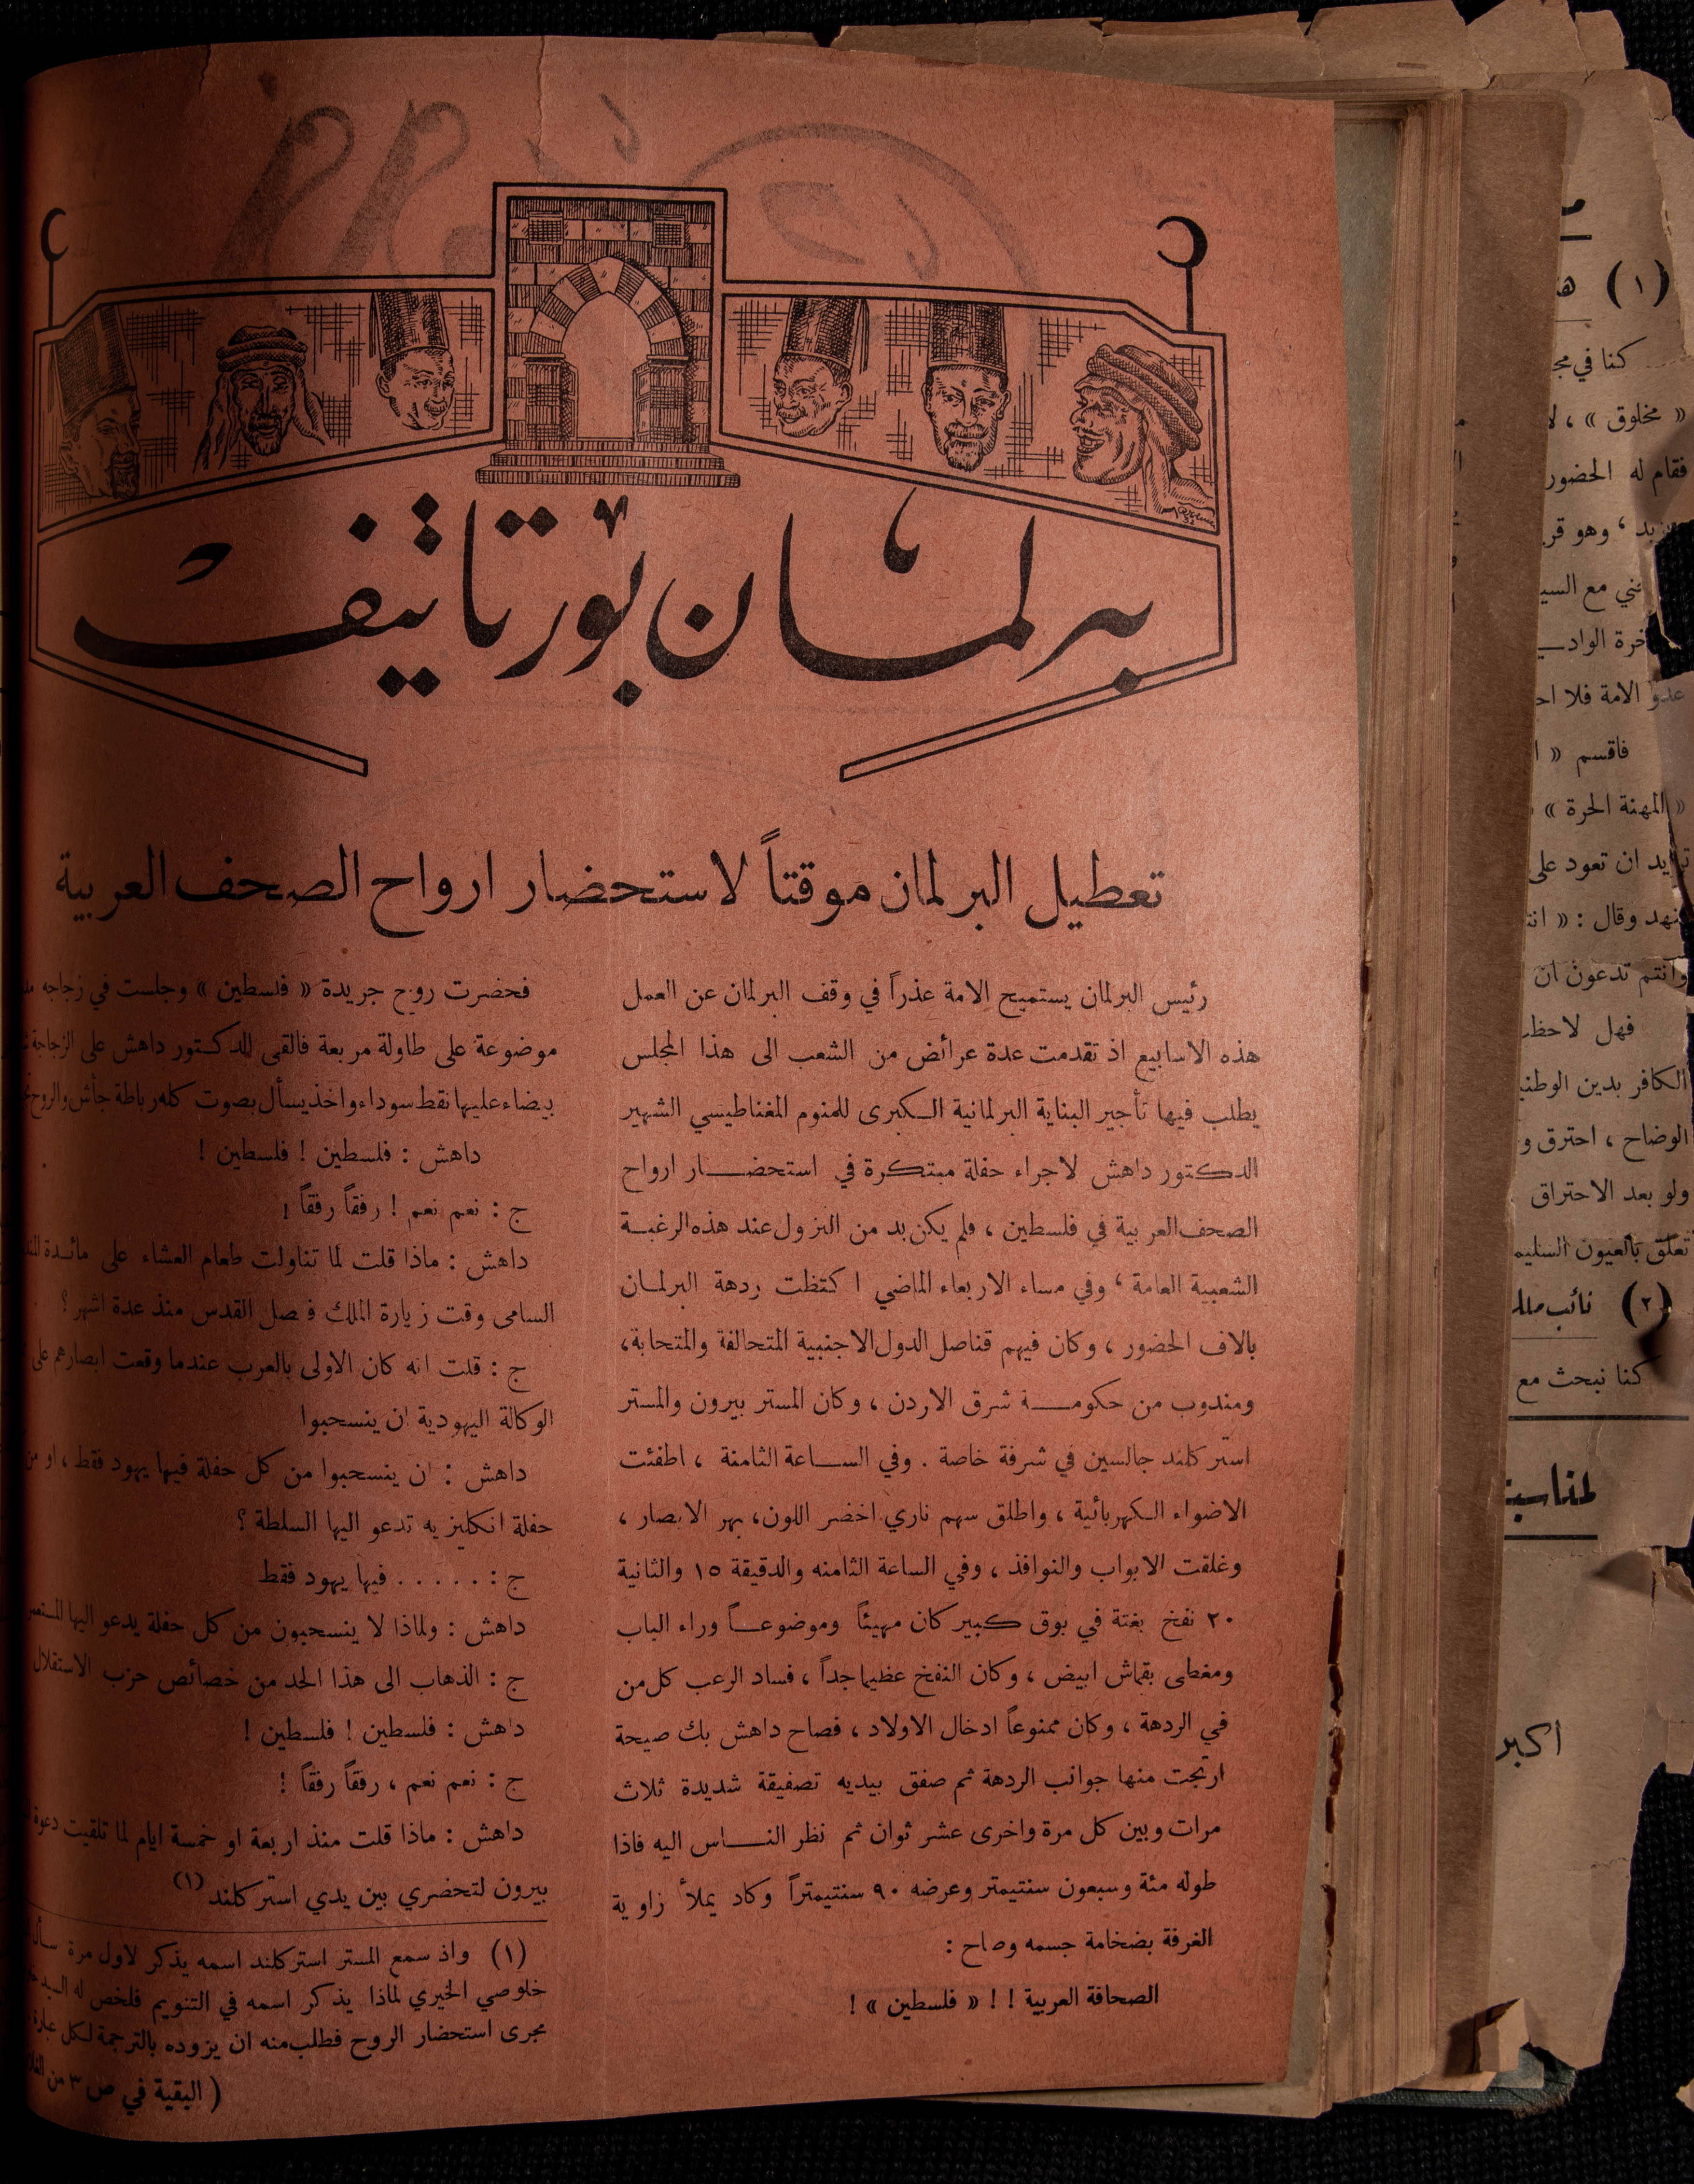 برلمان بورتاتيف
تعطيل البرلمان موقتاً لاستحضار ارواح الصحف العربية
رئيس البرلمان يستميح الامة عذراً في وقف البرلمان عن العمل
هذه الاسابيع اذ تقدمت عدة عرائض من الشعب الى هذا المجلس
يطلب فيها تأجير البناية البرلمانية الكبرى للمنوم المغناطيسي الشهير
الدكتور داهش لاجراء حفلة مبتكرة في استحضار ارواح
الصحف العربية في فلسطين ، فلم يكن بد من النزول عند هذه الرغبة
الشعبية العامة ، وفي مساء الاربعاء الماضي اكتظت ردهة البرلمان
بالاف الحضور ، وكان فيهم قناصل الدول الاجنبية المتحالفة والمتحابة ،
ومندوب من حكومة شرق الاردن ، وكان المستر بيرون والمستر
استركلند جالسين في شرفة خاصة . وفي الساعة الثامنة ، اطفئت
الاضواء الكهربائية ، واطلق سهم ناري اخضر اللون ، بهر الابصار ،
وغلقت الابواب والنوافذ ، وفي الساعة الثامنه والدقيقة ١٥ والثانية
٢٠ نفخ بغتة في بوق كبير كان مهيئاً وموضوعاً وراء الباب
ومغطى بقماش ابيض ، وكان النفخ عظيما جداً ، فساد الرعب كل من
في الردهة ، وكان ممنوعاً ادخال الاولاد ، فصاح داهش بك صيحة
ارتجت منها جوانب الردهة ثم صفق بيديه تصفيقة شديدة ثلاث
مرات وبين كل مرة واخرى عشر ثوان ثم نظر الناس اليه فاذا
طوله مئة وسبعون سنتيمتر وعرضه ٩٠ سنتيمتراً وكاد يملأ زاوية
الغرفة بضخامة جسمه وصاح :
الصحافة العربية ! ! « فلسطين » !
فحضرت روح جريدة « فلسطين » وجلست في زجاجه
موضوعة على طاولة مربعة فالقى الدكتور داهش على الزجاجة
بيضاء عليها نقط سوداء واخذ يسأل بصوت كله رباطة جأش والروح
داهش : فلسطين ! فلسطين !
ج : نعم نعم ! رفقاً رفقاً !
داهش : ماذا قلت لما تناولت طعام العشاء على مائدة
السامى وقت زيارة الملك فيصل القدس منذ عدة اشهر ؟
ج : قلت انه كان الاولى بالعرب عندما وقعت ابصارهم على
الوكالة اليهودية ان ينسحبوا
داهش : ان ينسحبوا من كل حفلة فيها يهود فقط ، او من
حفلة انكليزيه تدعو اليها السلطة ؟
ج : . . . . . فيها يهود فقط
داهش : ولماذا لا ينسحبون من كل حفلة يدعو اليها
ج : الذهاب الى هذا الحد من خصائص حزب الاستقلال
داهش : فلسطين ! فلسطين !
ج : نعم نعم ، رفقاً رفقاً !
داهش : ماذا قلت منذ اربعة او خمسة ايام لما تلقيت دعوة
بيرون لتحضري بين يدي استركلند (١)
(١) واذ سمع المستر استركلند اسمه يذكر لاول مرة
خلوصي الخيري لماذا يذكر اسمه في التنويم فلخص له السيد
مجرى استحضار الروح فطلب منه ان يزوده بالترجمة لكل عبارة
( البقية في ص ٣ من
(١)
كنا في
« مخلوق » ،
فقام له الحضور
وهو
مع السيد
عدو الامة فلا
فاقسم «
« المهنة الحرة »
ان تعود على
وقال : «
وانتم تدعون ان
فهل
الكافر بدين
الوضاح ، احترق
ولو بعد الاحتراق
تعلق بالعيون
(٢) نائب
كنا نبحث مع
اكبر